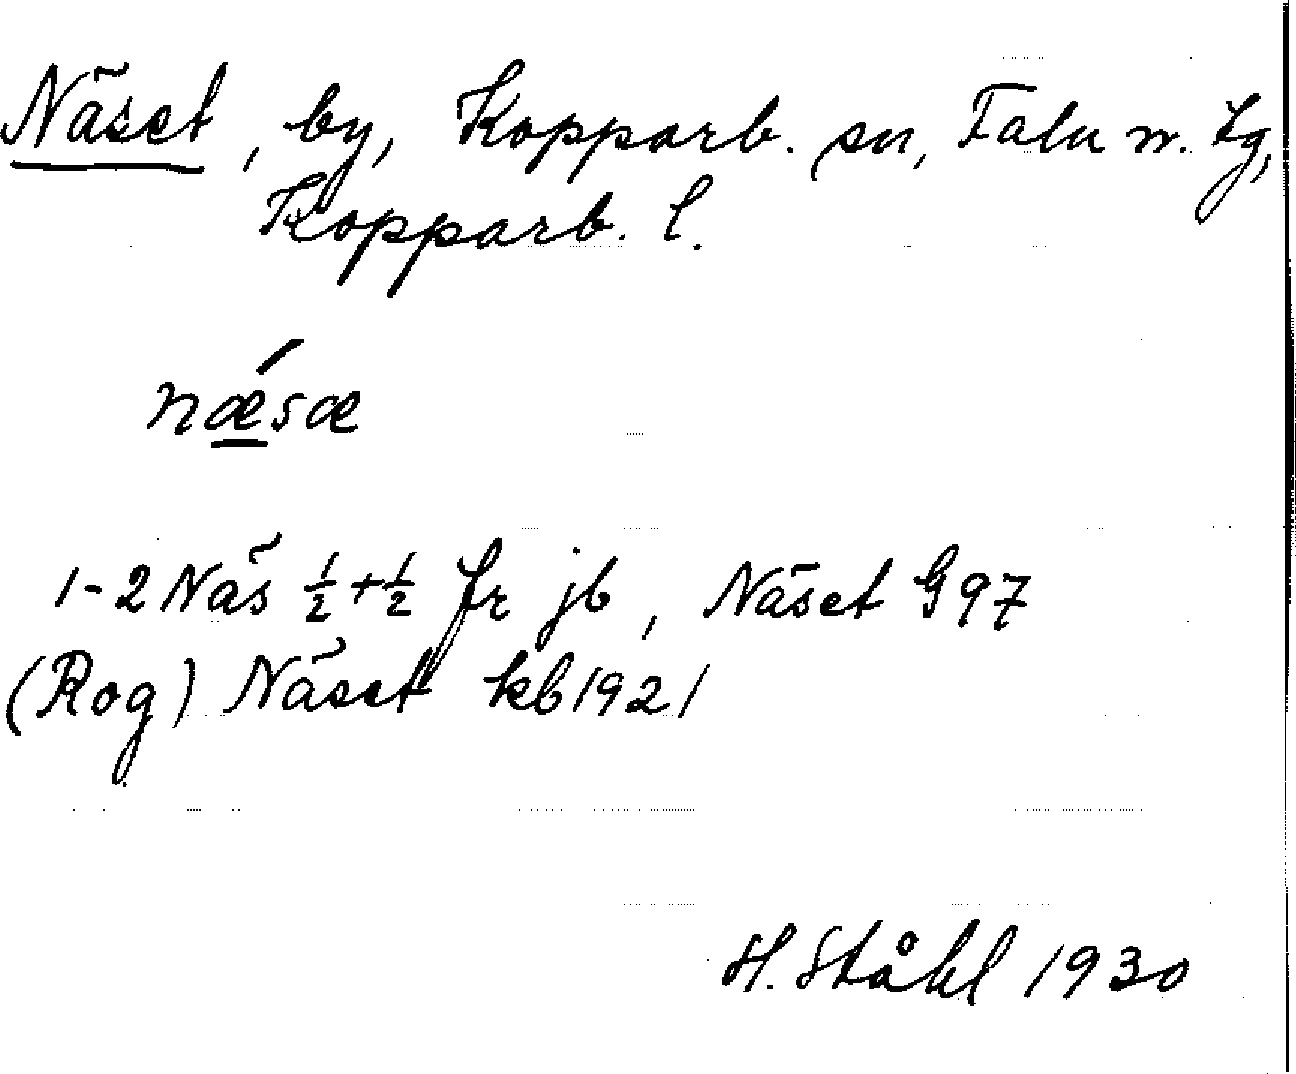 Näset, by, Kopparb. sn, Falu n. tg,
Kopparb. l.
nǽ̲sæ
1-2 Näs ½+½ fr jb, Näset G97
(Rog) Näset kb 1921
H. Ståhl 1930